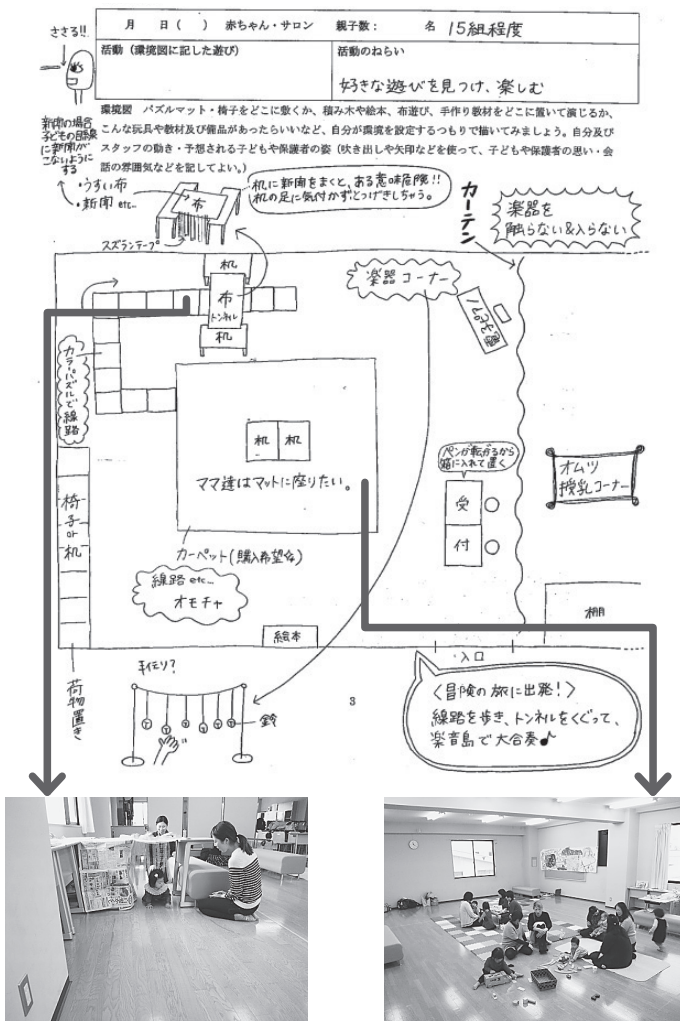 月　日（　）赤ちゃん・サロン　親子数：　名 15組程度
活動（環境図に記した遊び）
活動のねらい
好きな遊びを見つけ、楽しむ
ささる!!
新聞の場合
子どもの目線
に新聞が
こないように
する
環境図　パズルマット・椅子をどこに敷くか、積み木や絵本、布遊び、手作り教材をどこに置いて演じるか、
こんな玩具や教材及び備品があったらいいなど、自分が環境を設定するつもりで描いてみましょう。自分及び
スタッフの動き・予想される子どもや保護者の姿（吹き出しや矢印などを使って、子どもや保護者の思い・会
話の雰囲気などを記してよい。）
・うすい布
・新聞 etc..
布
スズランテープ
机に新聞をまくと、ある意味危険!!
机の足に気付かずとつげきしちゃう。
カーテン
楽器を
触らない&入らない
机
布
トンネル
机
楽器コーナー
電子ピアノ
カラーパズルで線路
机 机
ママ達はマットに座りたい。
ペンが転がるから
箱に入れて置く
受
付
オムツ
授乳コーナー
椅子or机
カーペット(購入希望な)
線路 etc...
オモチャ
絵本
棚
入口
荷物置き
手作り?
鈴
3
〈冒険の旅に出発!〉
線路を歩き、トンネルをくぐって、
楽音島で大合奏♪